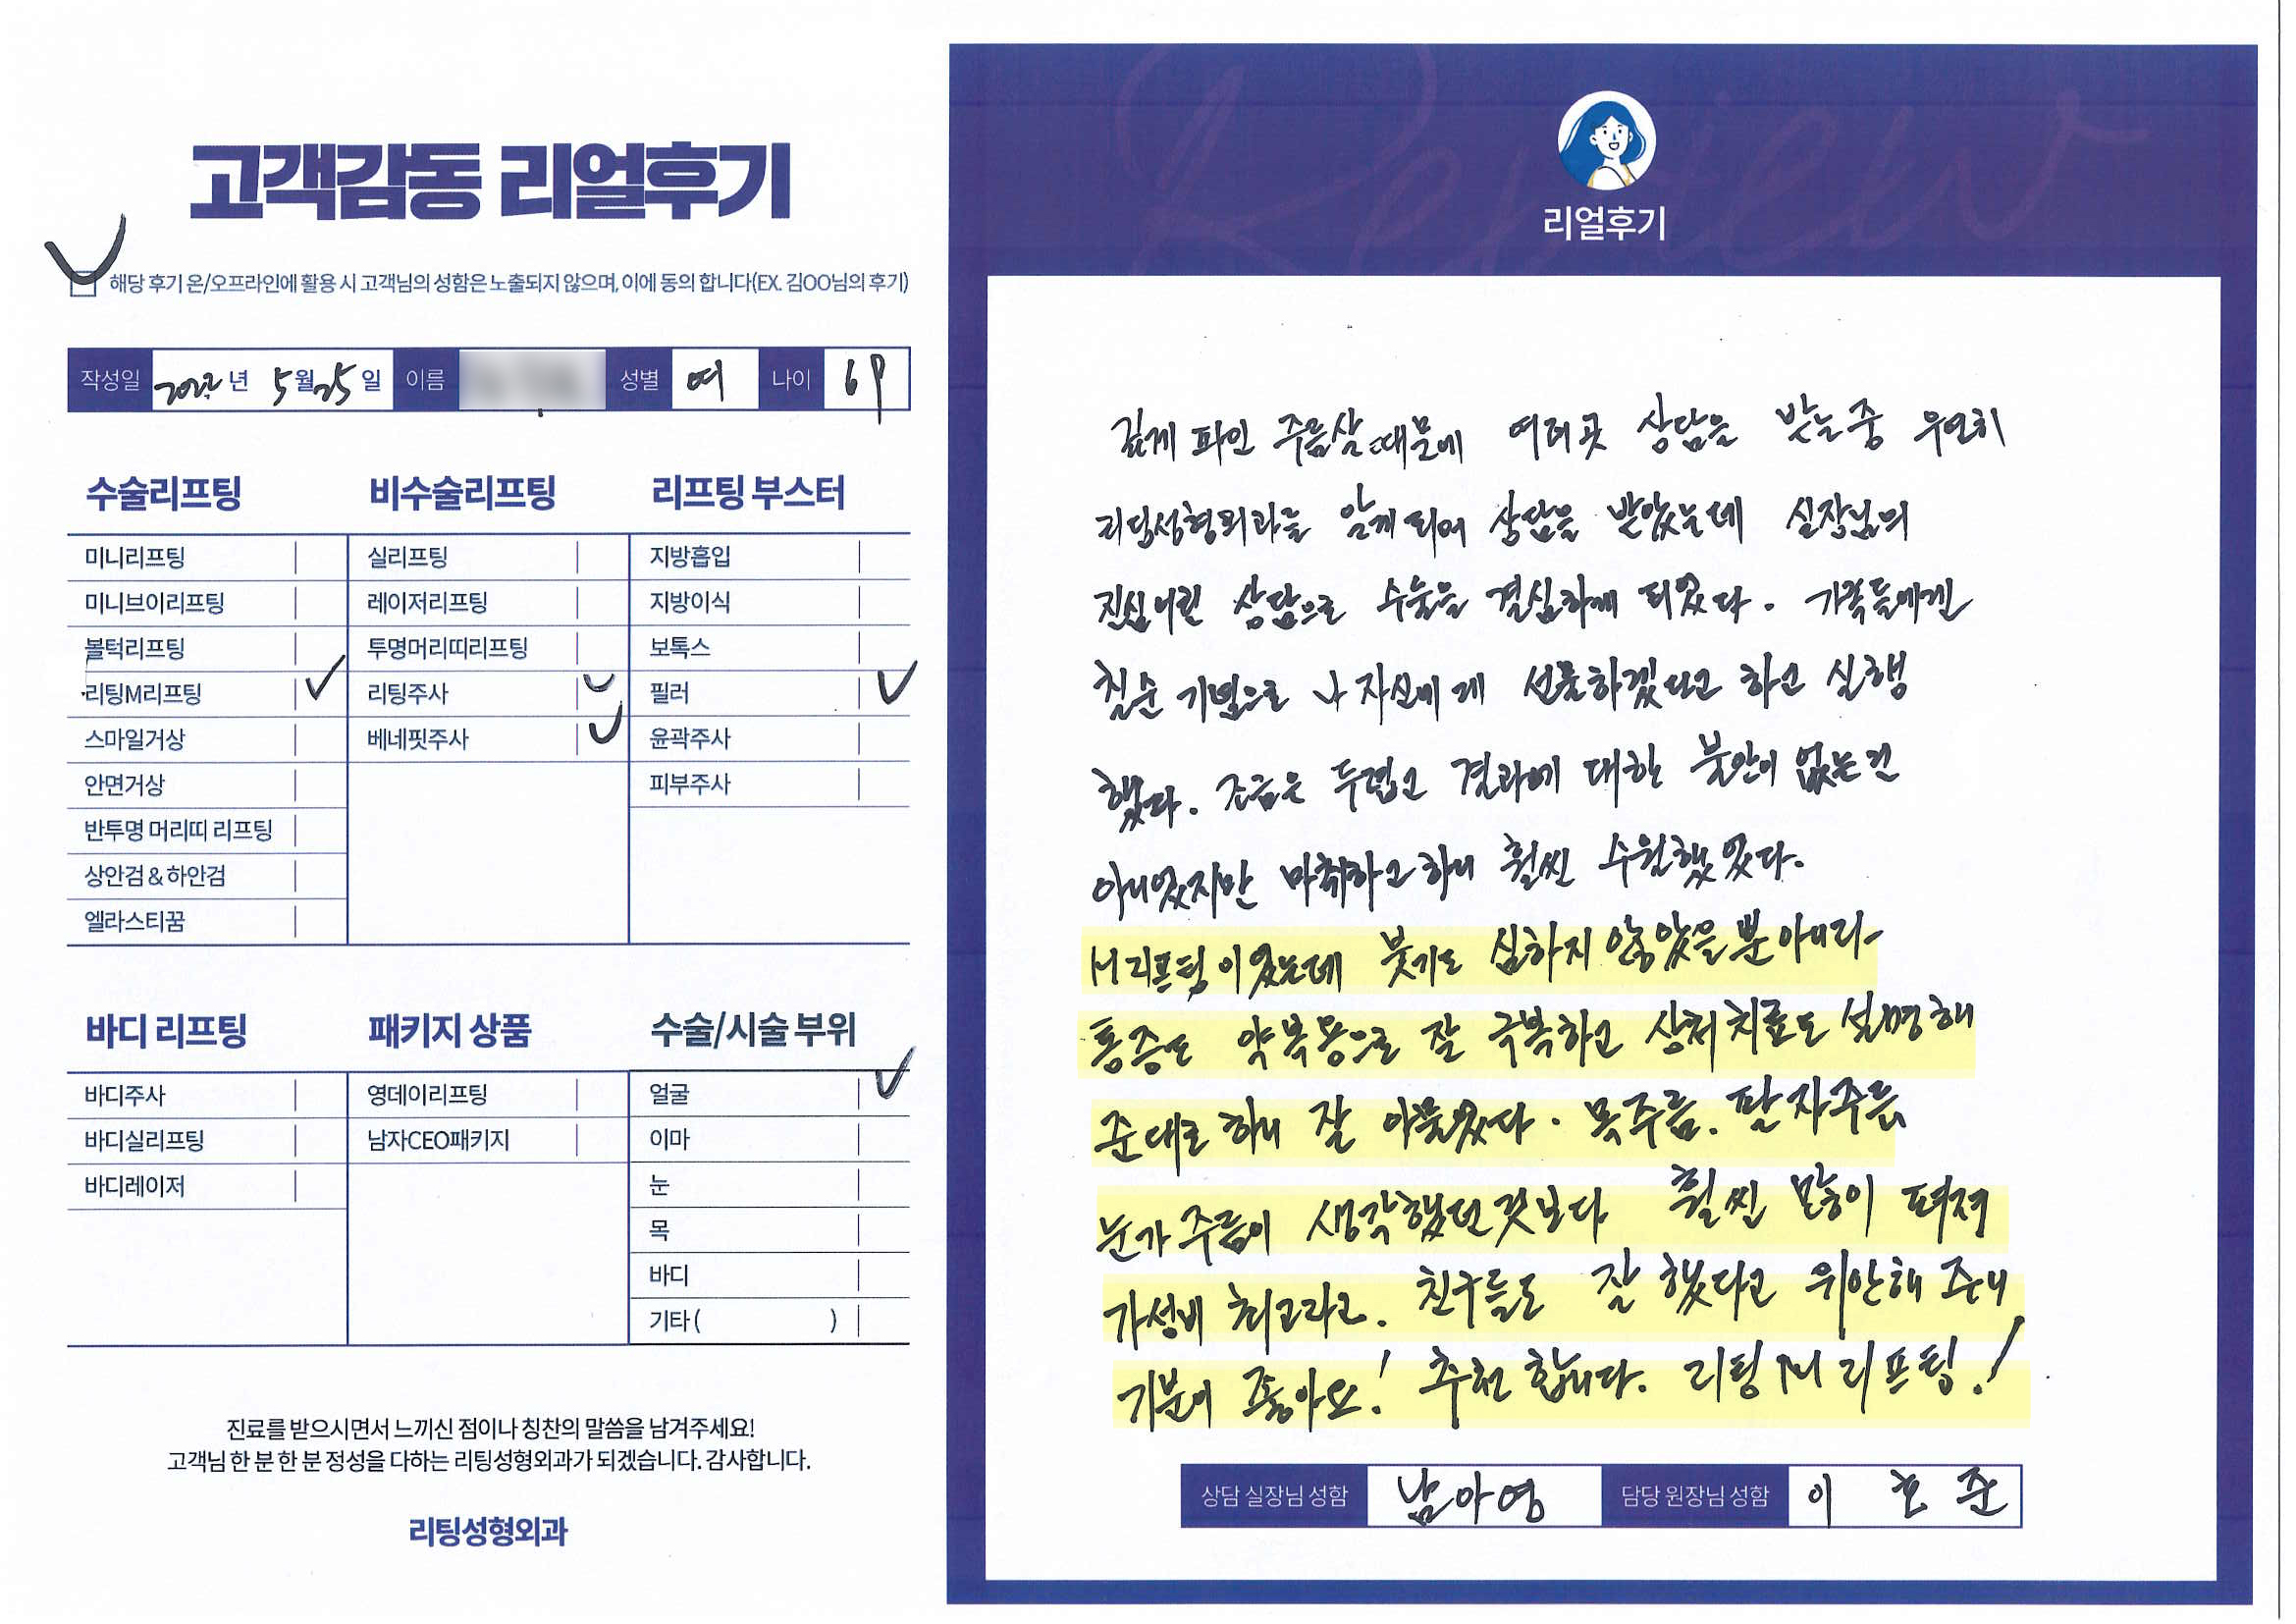 고객감동 리얼후기
해당 후기 온/오프라인에 활용 시 고객님의 성함은 노출되지 않으며, 이에 동의 합니다(EX. 김OO님의 후기)
작성일 2022년 5월 25일 이름 성별 여 나이 69
수술리프팅
미니리프팅
미니브이리프팅
볼턱리프팅
리팅M리프팅
스마일거상
안면거상
반투명 머리띠 리프팅
상안검 & 하안검
엘라스티꿈
비수술리프팅
실리프팅
레이저리프팅
투명머리띠리프팅
리팅주사
베네핏주사
리프팅 부스터
지방흡입
지방이식
보톡스
필러
윤곽주사
피부주사
바디 리프팅
바디주사
바디실리프팅
바디레이저
패키지 상품
영데이리프팅
남자CEO패키지
수술/시술 부위
얼굴
이마
눈
목
바디
기타 ( )
진료를 받으시면서 느끼신 점이나 칭찬의 말씀을 남겨주세요!
고객님 한 분 한 분 정성을 다하는 리팅성형외과가 되겠습니다. 감사합니다.
리팅성형외과
Review
리얼후기
깊게 파인 주름살 때문에 여러곳 상담을 받는중 우연히
리팅성형외과를 알게 되어 상담을 받았는데 실장님의
진심어린 상담으로 수술을 결심하게 되었다. 가족들에겐
칠순 기념으로 나 자신에게 선물하겠다고 하고 실행
했다. 조금은 두렵고 결과에 대한 불안이 없는건
아니었지만 마취하고 하니 훨씬 수월했었다.
M리프팅이었는데 붓기도 심하지 않았을 뿐 아니라
통증도 약복용으로 잘 극복하고 상처 치료도 설명해
준대로 하니 잘 아물었다. 목주름. 팔자주름
눈가 주름이 생각했던것보다 훨씬 많이 펴져
가성비 최고라고. 친구들도 잘 했다고 위안해 주니
기분이 좋아요! 추천 합니다. 리팅 M 리프팅!
상담 실장님 성함 남아영 담당 원장님 성함 이호준